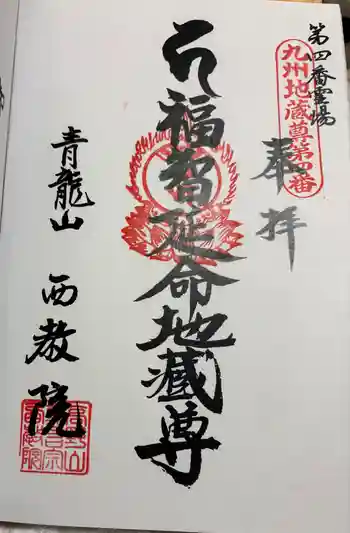 第四番霊場
九州地蔵尊第四番
奉拝
福智延命地蔵尊
青龍山
西教院